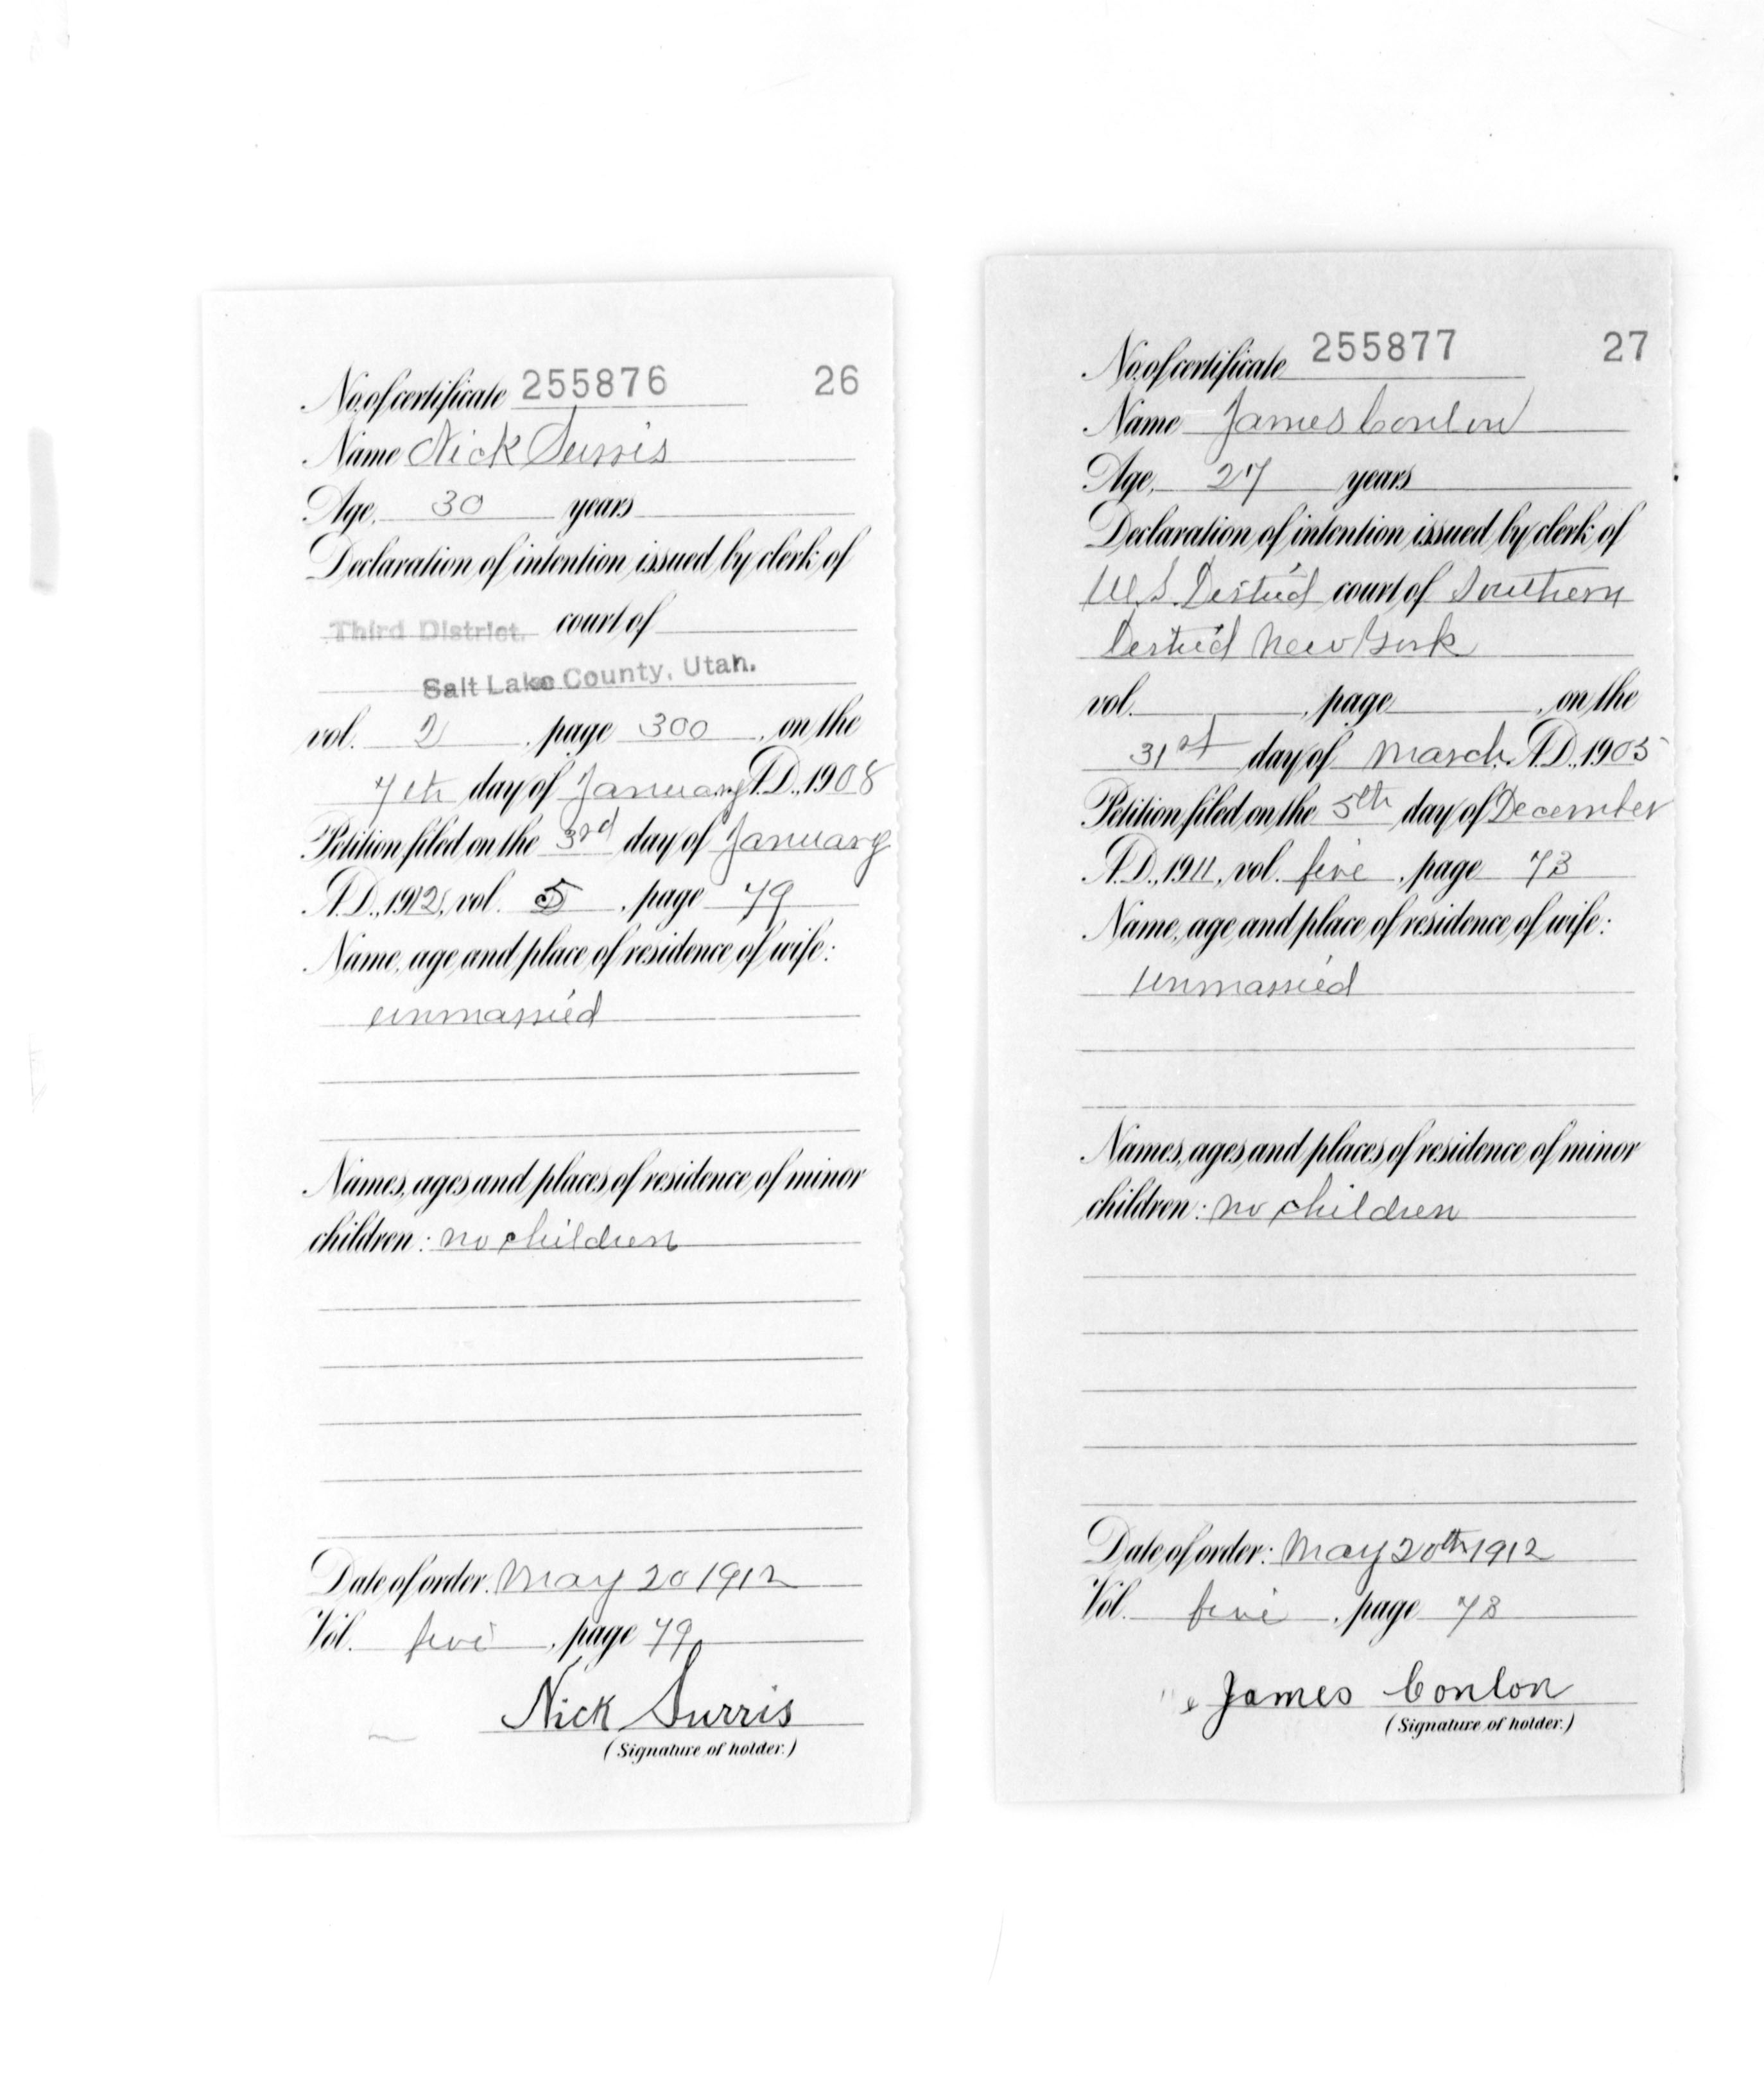 No. of certificate 255876 26
Name Nick Surris
Age, 30 years
Declaration of intention issued by clerk of
Third District. court of
Salt Lake County, Utah.
vol. 2, page 300, on the
7th day of January A.D., 1908
Petition filed on the 3rd day of January
A.D., 1912, vol. 5, page 79
Name, age and place of residence of wife:
unmarried
Names, ages and places of residence of minor
children: no children
Date of order: May 20 1912
Vol. five, page 79
Nick Surris
(Signature of holder.)
No. of certificate 255877 27
Name James Conlon
Age, 27 years
Declaration of intention issued by clerk of
U.S. District court of Southern
District New York
vol. , page , on the
31st day of March A.D., 1905
Petition filed on the 5th day of December
A.D., 1911, vol. five, page 73
Name, age and place of residence of wife:
unmarried
Names, ages and places of residence of minor
children: no children
Date of order: May 20th 1912
Vol. five, page 73
James Conlon
(Signature of holder.)